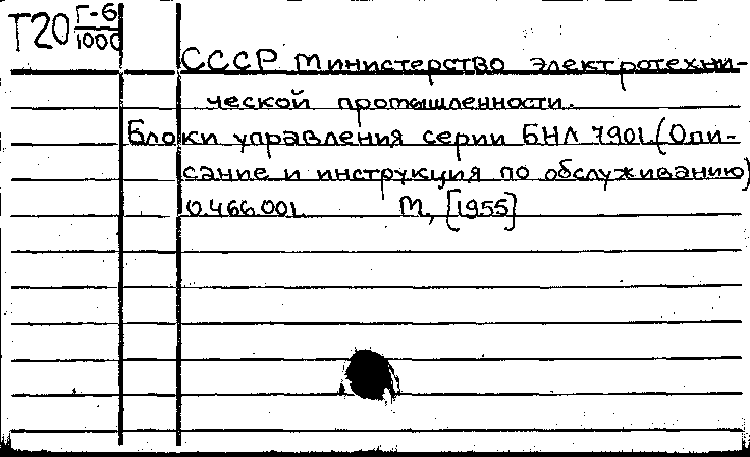 Т20 Г-6
1000
СССР Министерство электротехни-
ческой промышленности.
Блоки управления серии БНЛ 7901. (Опи-
сание и инструкция по обслуживанию)
0.466.001. М., [1955]